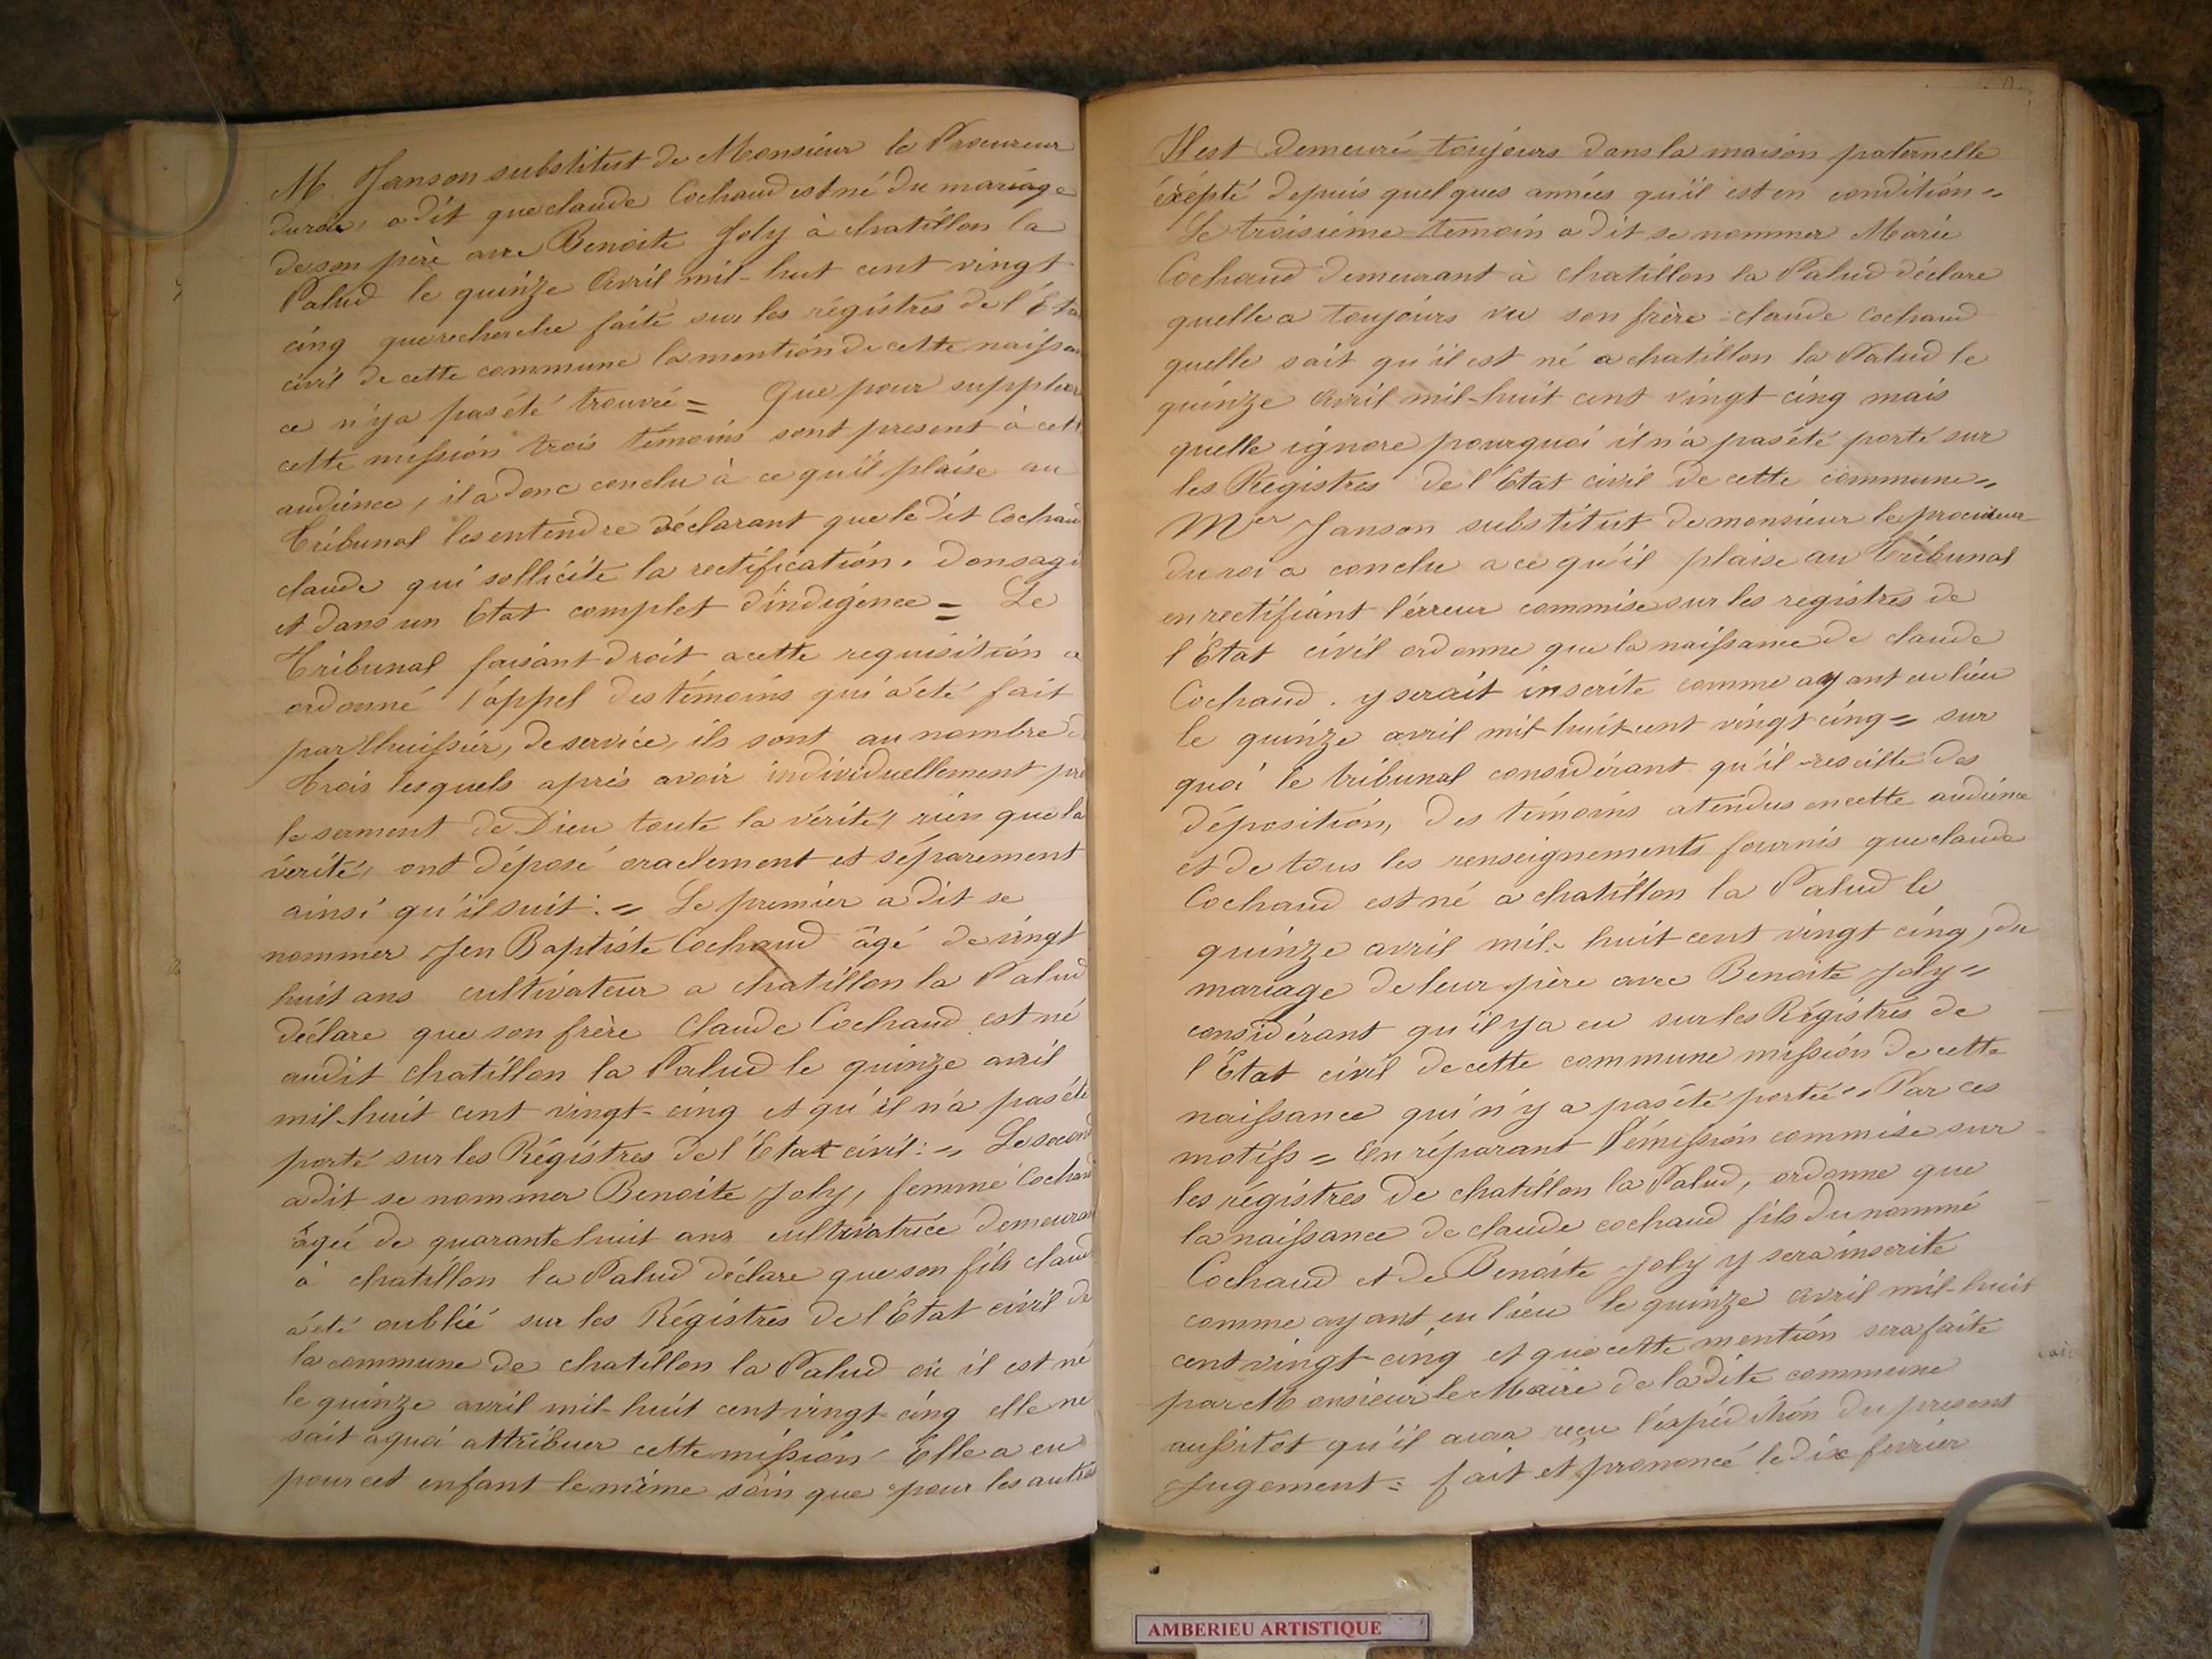 M. Janson substitut de Monsieur le Procureur
du roi, a dit que claude Cochaud est né du mariage
de son père avec Benoite Joly à chatillon la
Palud le quinze Avril mil-huit cent vingt
cinq que recherche faite sur les régistres de l'Eta
civil de cette commune la mention de cette naissan
ce n'y a pas été trouvée = Que pour suppléer
cette mission trois témoins sont present à cett
audience, il a donc conclu à ce qu'il plaise au
Tribunal les entendre déclarant que le dit Cochaud
claude qui sollicite la rectification. Don sagi
et dans un Etat complet d'indigence = Le
Tribunal faisant droit a cette requisition a
ordonné l'appel des témoins qui a été fait
par l'huissier, de service, ils sont au nombre d
trois lesquels après avoir individuellement pre
le serment de Dieu toute la vérité, rien que la
vérité, ont déposé oraclement et séparement
ainsi qu'il suit : = Le premier a dit se
nommer Jen Baptiste Cochaud âgé de vingt
huit ans cultivateur a chatillon la Palud
déclare que son frère Claude Cochaud est né
audit chatillon la Palud le quinze avril
mil-huit cent vingt-cinq et qu'il n'a pas été
porté sur les Régistres de l'Etat civil : = Le second
a dit se nommer Benoite Joly, femme Cochaud
âgée de quarante huit ans cultivatrice demeuran
à chatillon la Palud déclare que son fils claud
a été oublié sur les Régistres de l'Etat civil de
la commune de chatillon la Palud où il est né
le quinze avril mil-huit cent vingt-cinq elle ne
sait a quoi attribuer cette mission Elle a eu
pour cet enfant le même soin que pour les autres
Il est demeuré toujours dans la maison paternelle
éxépté depuis quelques années qu'il est en condition =
Le troisième temoin a dit se nommer Marie
Cochaud demeurant à chatillon la Palud déclare
quelle a toujours vu son frère claude cochaud
quelle sait qu'il est né a chatillon la Palud le
quinze Avril mil-huit cent vingt cinq mais
quelle ignore pourquoi il n'a pas été porté sur
les Régistres de l'Etat civil de cette commune =
Mer Janson substitut de monsieur le procureur
du roi a conclu a ce qu'il plaise au Tribunal
en rectifiant l'érreur commise sur les registres de
l'Etat civil ordonne que la naissance de claude
Cochaud. y serait inscrite comme ayant eu lieu
le quinze avril mil-huit cent vingt cinq = sur
quoi le tribunal considérant qu'il resulte des
déposition, des témoins atendus en cette audience
et de tous les renseignements fournis que claude
Cochaud est né a chatillon la Palud le
quinze avril mil-huit cent vingt cinq, du
mariage de leur père avec Benoite Joly =
considérant qu'il y a eu sur les Régistres de
l'Etat civil de cette commune mission de cette
naissance qui n'y a pas été portée = Par ces
motifs = En réparant l'émission commise sur
les régistres de chatillon la Palud, ordonne que
la naissance de claude cochaud fils du nommé
Cochaud et de Benoite Joly y sera inscrite
comme ayant eu lieu le quinze avril mil-huit
cent vingt-cinq et que cette mention sera faite
par Monsieur le Maire de la dite commune
aussitôt qu'il aura reçu l'éxpédition du present
Jugement = fait et prononcé le dix fevrier
AMBERIEU ARTISTIQUE